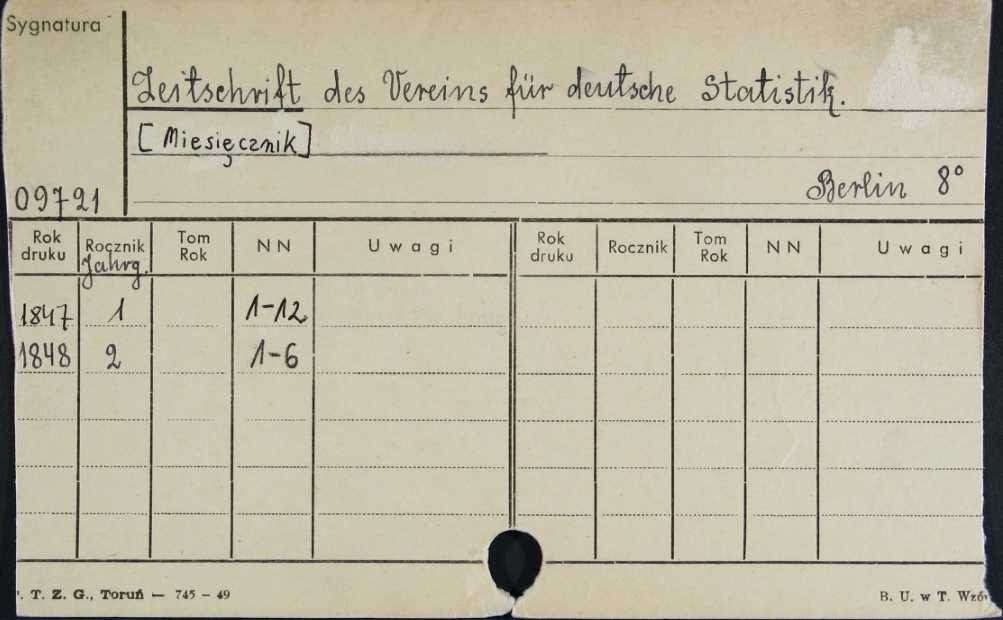 Sygnatura
Zeitschrift des Vereins für deutsche Statistik.
[Miesięcznik]
Berlin 8°
09721
Rok druku Rocznik Jahrg. Tom Rok NN Uwagi Rok druku Rocznik Tom Rok NN Uwagi
1847 1 1-12
1848 2 1-6
T. Z. G., Toruń — 745 - 49 B. U. w T.